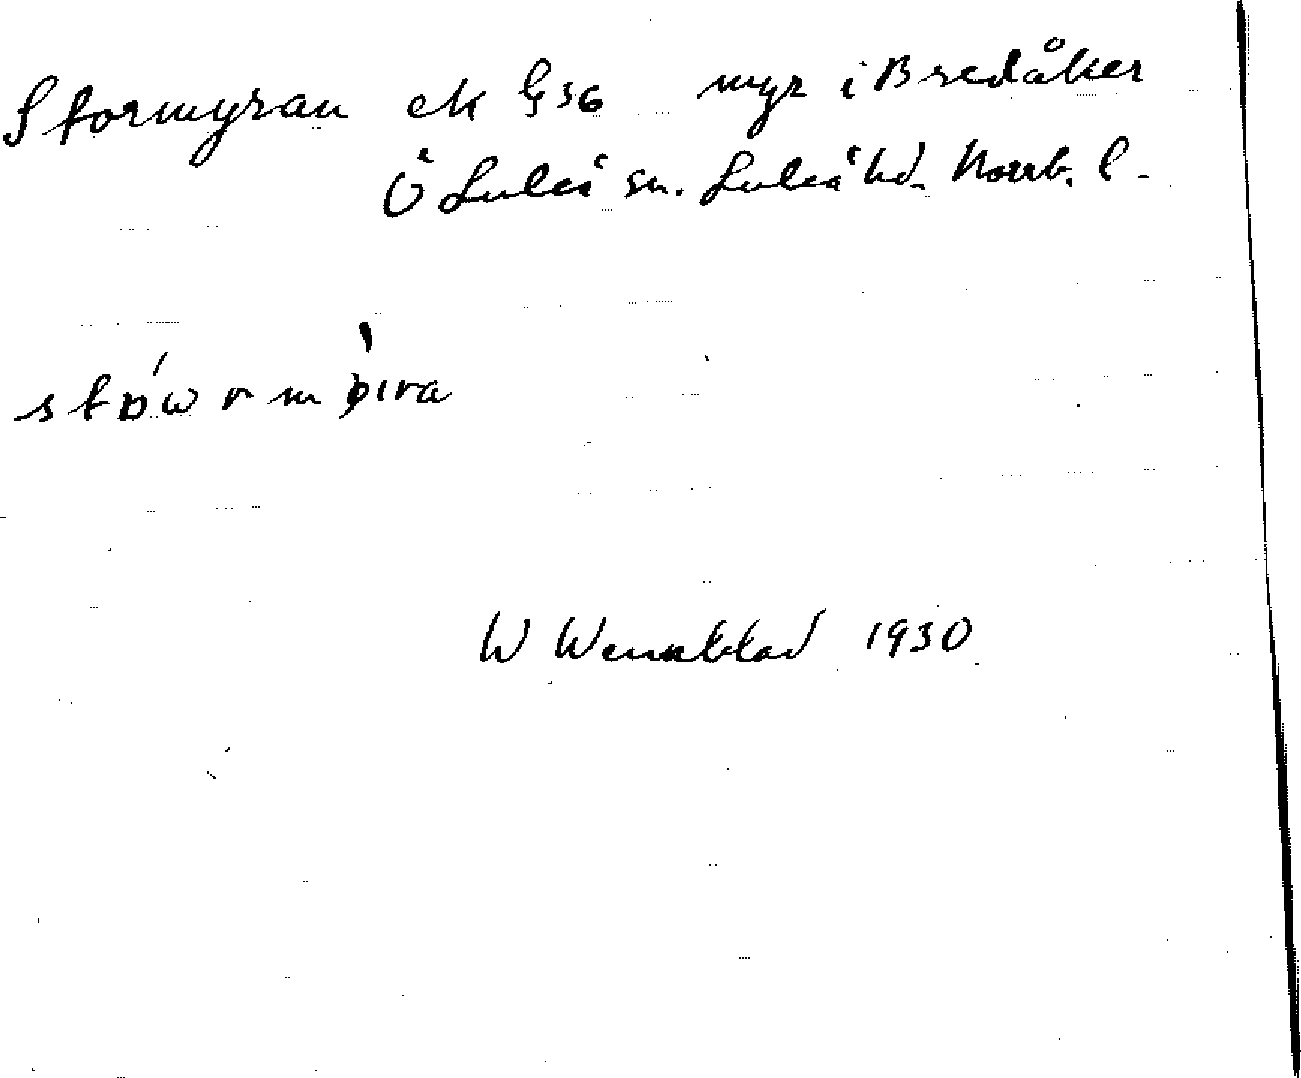 Stormyran ek G 36 myr i Bredåker
Ö Luleå sn. Luleå hd. Norrb. l.
W Wennblad 1930